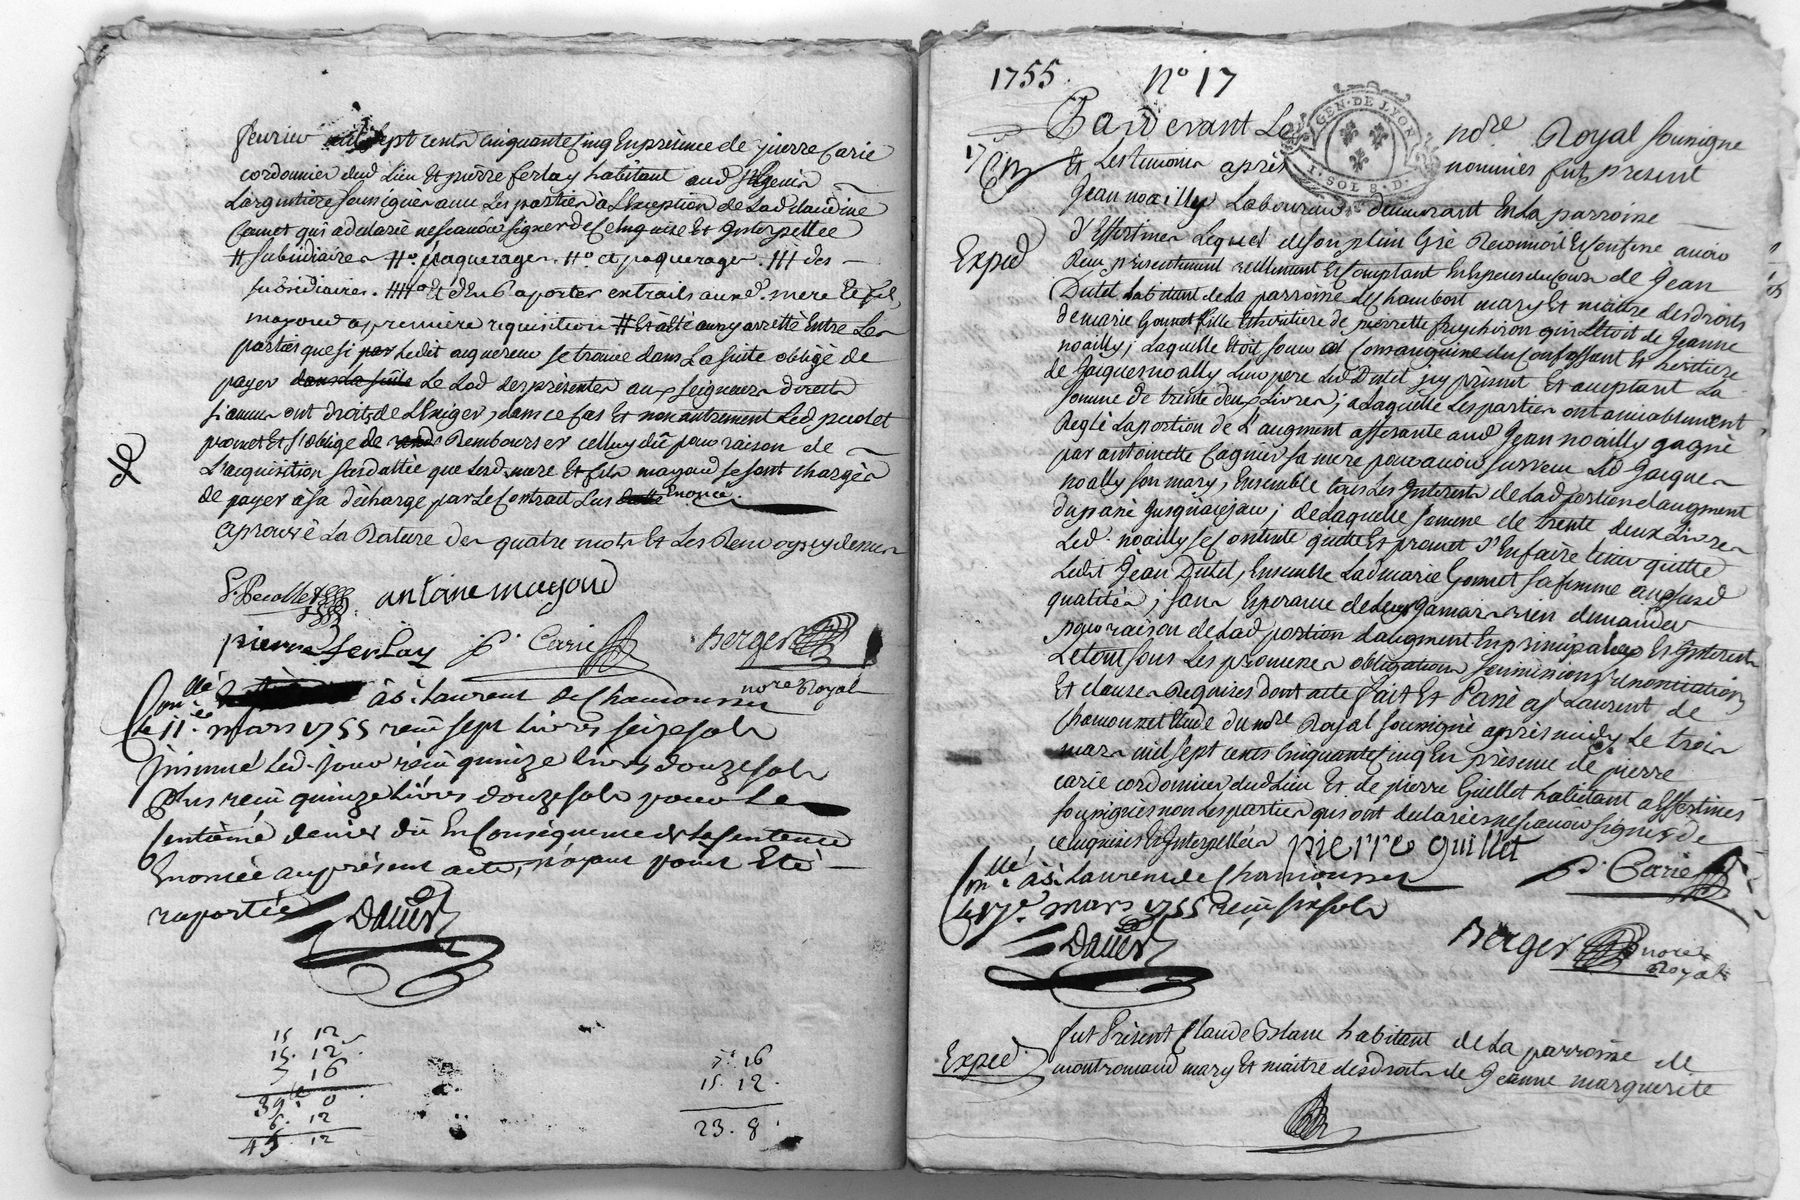 fevrier mil sept cents cinquante cinq En présence de pierre Carie
cordonnier dud lieu Et pierre ferlay habitant aud St Genis
Largentiere sousignés avec Les parties à L'Exception de Lad Claudine
Comet qui a déclarée ne sçavoir signer de ce Enquise Et Interpellée
# subsidiaires #o. paquerages. #o et paquerages. III des
subsidiaires. IIII
mayoud a première requisition # Et à été aussy arretté Entre Les
parties que si par Ledit acquereur se trouve dans La suite obligé de
payer dans La suite Le Lod des présentes aux seigneurs directs
ont droit de L'Exiger, dans ce Cas Et non autrement Led
promet Et s'oblige de Rembourser celluy dû pour raison de
L'acquisition que Lesd mere Et fils mayoud se sont chargés
de payer à sa décharge par Le Contrait Enoncé.
aprouvé La Rature des quatre mots Et Les Renvoys cy dessus
antoine mayoud
pierre ferlay P. Carie Berger
nore Royal
Conllé à St Laurent de Chamousset
Le 11e mars 1755 reçu sept livres seize sols
insinué Led. jour reçu quinze livres douze sols
plus reçu quinze livres douze sols pour Le
centième denier dû En Conséquence de La sentence
Enoncée au présent acte, n'ayant point Eté
raportée
15 12
15. 12.
7 16
39. 0
6. 12
45 12
7. 16
15. 12.
23. 8.
1755. No 17
Pardevant Le nore Royal sousigné
Et Les temoins après nommés fut présent
GEN. DE LYON
1. SOL 8. D.
Jean noailly Laboureur demeurant En La parroisse
Exped
d'Essertines Lequel de son plein Gré Reconnoit Et Confesse avoir
Reçu présentement réellement Et Comptant En Especes du Cours de Jean
Dutel habitant de La parroisse de Chambost mary Et maitre des droits
de marie Gonnet fille Et héritiere de pierrette qui Etoit de Jeanne
noailly; Laquelle Etoit soeur Consanguine du Confessant Et héritiere
de Jacques noally Leur pere Led Dutel icy présent Et acceptant La
somme de trente deux Livres; a Laquelle Les parties ont amiablement
Reglé La portion de L'augment afferante aud Jean noailly gagné
par antoinette Cagnier sa mere pour avoir survecu Led Jacques
noally son mary, Ensemble tous Les Interests de Lad portion d'augment
du passé jusqu'a ce jour; de Laquelle somme de trente deux Livres
Led. noailly se Contente quitte Et promet d'En faire tenir quitte
Ledit Jean Dutel, Ensemble Lad marie Gonnet sa femme
qualités; sans Esperance de Leur jamais rien demander
pour raison de Lad portion d'augment En principal Et Interests
Le tout sous Les promesses obligations soumissions renonciations
Et clauses Requises dont acte fait Et Passé a St Laurent de
Chamousset Etude du nore Royal sousigné après midy Le trois
mars mil sept cents Cinquante Cinq En présence de pierre
Carie cordonnier dud Lieu Et de pierre Guillet habitant a Essertines
sousignés non Les parties qui ont declarées ne sçavoir signer de
ce Enquises Et Interpellées
pierre guillet
P. Carie
Conllé à St Laurent de Chamousset
Le 17e mars 1755 reçu six sols
Berger nore
Royal
Fut Présent Claude habitant de La parroisse de
Exped
montromand mary Et maitre des droits de Jeanne marguerite